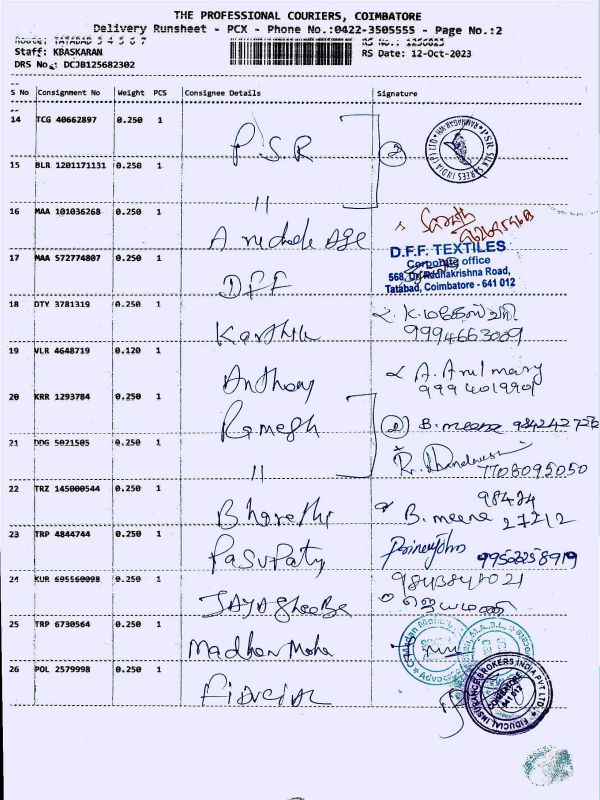 THE PROFESSIONAL COURIERS, COIMBATORE
Delivery Runsheet - PCX - Phone No.:0422-3505555 - Page No.:2
Route: TATABAD 3 4 5 6 7
RS No.: 1256823
Staff: KBASKARAN
RS Date: 12-Oct-2023
DRS No.: DCJB125682302
S No Consignment No Weight PCS Consignee Details Signature
14 TCG 40662897 0.250 1 P.S.R 2
PSR SILK SAREES INDIA (P) LTD
15 BLR 1201171131 0.250 1 11
16 MAA 101036268 0.250 1
17 MAA 572774807 0.250 1 DFF
D.F.F. TEXTILES
Corporate office
568, Dr. Radhakrishna Road,
Tatabad, Coimbatore - 641 012
18 DTY 3781319 0.250 1 Karthik
K. மகேஸ்வரி
9994663009
19 VLR 4648719 0.120 1 Anthony
A. Arul mary
20 KRR 1293784 0.250 1 Ramesh
2 B. meena
21 DDG 5021505 0.250 1 11
7708095050
22 TRZ 145000544 0.250 1 Bharathi
B. meena 98424 27212
23 TRP 4844744 0.250 1 Pasupaty
24 KUR 695560098 0.250 1
ஜெயமணி
25 TRP 6730564 0.250 1 Madhan Moha
26 POL 2579998 0.250 1 Fiducial
FIDUCIAL INSURANCE BROKERS INDIA PVT LTD.
COIMBATORE
641 012